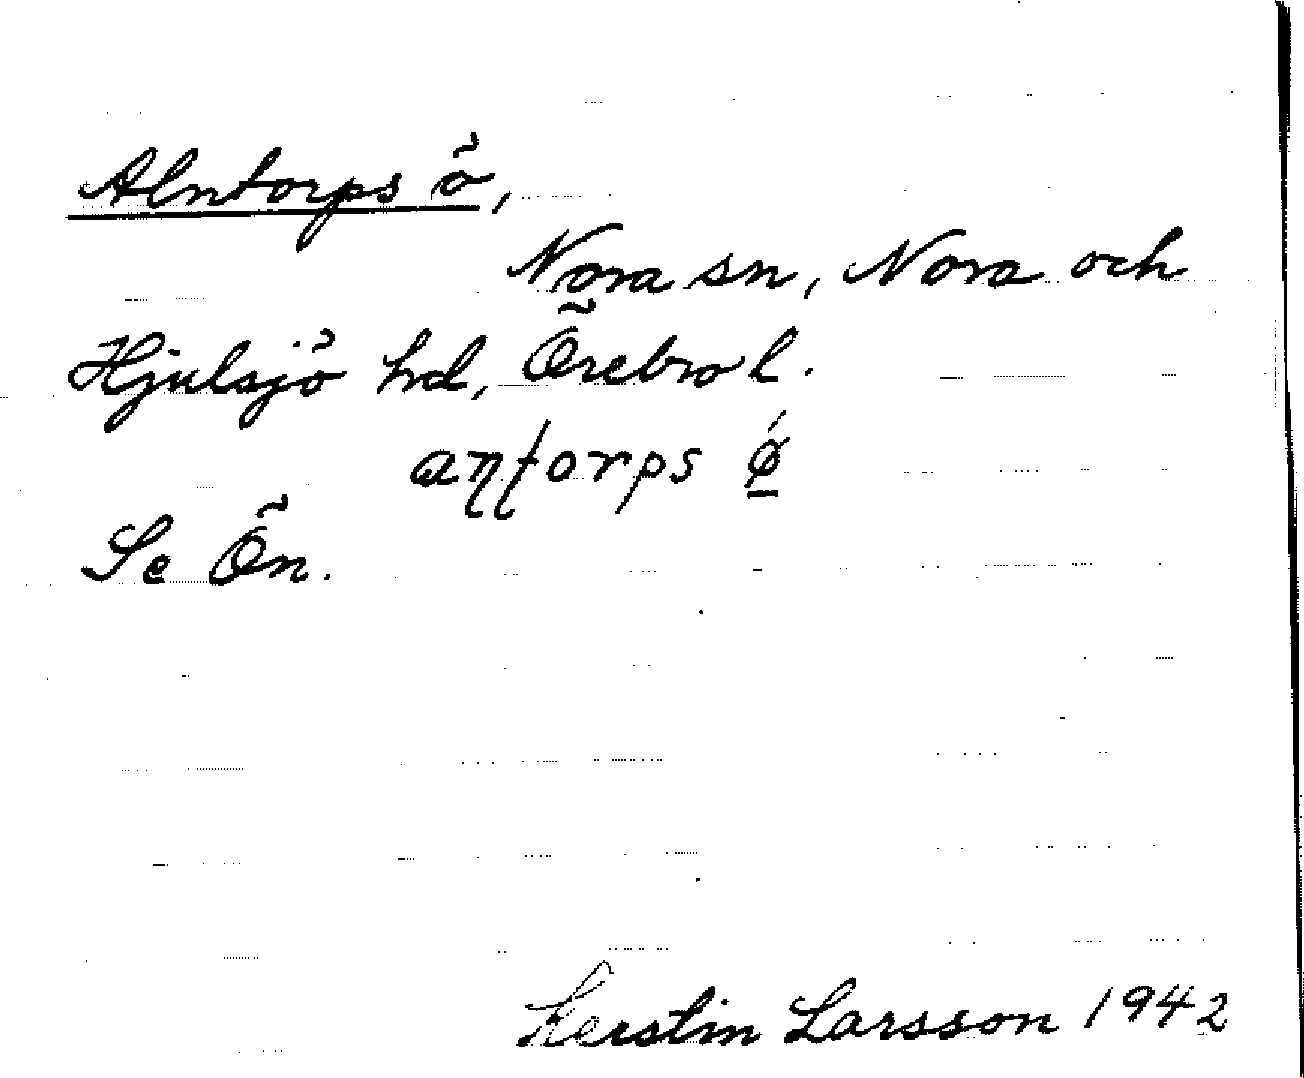 Alntorps ö,
Nora sn, Nora och
Hjulsjö hd, Örebro l.
aꞃʈorps ǿ̲
Se Ön.
Kerstin Larsson 1942